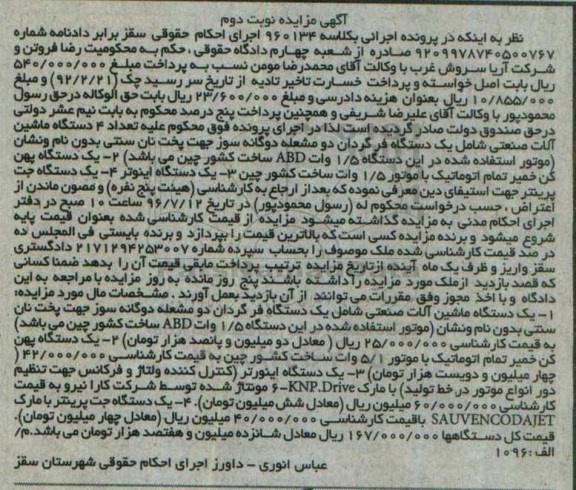 آگهی مزایده نوبت دوم
نظر به اینکه در پرونده اجرائی بکلاسه ۹۶۰۱۳۴ اجرای احکام حقوقی سقز برابر دادنامه شماره
۹۲۰۹۹۷۸۷۴۰۵۰۰۷۶۷ صادره از شعبه چهارم دادگاه حقوقی ، حکم به محکومیت رضا فروتن و
شرکت آریا سروش غرب با وکالت آقای محمدرضا مومن نسب به پرداخت مبلغ ۵۴۰/۰۰۰/۰۰۰
ریال بابت اصل خواسته و پرداخت خسارت تاخیر تادیه از تاریخ سر رسید چک (۹۲/۲/۲۱) و مبلغ
۱۰/۸۵۵/۰۰۰ ریال بعنوان هزینه دادرسی و مبلغ ۲۳/۶۰۰/۰۰۰ ریال بابت حق الوکاله در حق رسول
محمودپور با وکالت آقای علیرضا شریفی و همچنین پرداخت پنج درصد محکوم به بابت نیم عشر دولتی
در حق صندوق دولت صادر گردیده است لذا در اجرای پرونده فوق محکوم علیه تعداد ۴ دستگاه ماشین
آلات صنعتی شامل یک دستگاه فر گردان دو مشعله دوگانه سوز جهت پخت نان سنتی بدون نام ونشان
(موتور استفاده شده در این دستگاه ۱/۵ وات ABD ساخت کشور چین می باشد) ۲- یک دستگاه پهن
کن خمیر تمام اتوماتیک با موتور ۱/۵ وات ساخت کشور چین ۳- یک دستگاه اینوتر ۴- یک دستگاه جت
پرینتر جهت استیفای دین معرفی نموده که بعد از ارجاع به کارشناسی (هیئت پنج نفره) و مصون ماندن از
اعتراض ، حسب درخواست محکوم له (رسول محمودپور) در تاریخ ۹۶/۷/۱۲ ساعت ۱۰ صبح در دفتر
اجرای احکام مدنی به مزایده گذاشته میشود مزایده از قیمت کارشناسی شده بعنوان قیمت پایه
شروع میشود و برنده مزایده کسی است که بالاترین قیمت را بپردازد و برنده بایستی فی المجلس ده
در صد قیمت کارشناسی شده ملک موصوف را بحساب سپرده شماره ۲۱۷۱۲۹۴۲۵۳۰۰۷ دادگستری
سقز واریز و ظرف یک ماه آینده از تاریخ مزایده ترتیب پرداخت مابقی قیمت آن را بدهد ضمنا کسانی
که قصد بازدید از ملک مورد مزایده را داشته باشند پنج روز مانده به روز مزایده با مراجعه به این
دادگاه و با اخذ مجوز وفق مقررات می توانند از آن بازدید بعمل آورند . مشخصات مال مورد مزایده:
۱- یک دستگاه ماشین آلات صنعتی شامل یک دستگاه فر گردان دو مشعله دوگانه سوز جهت پخت نان
سنتی بدون نام ونشان (موتور استفاده شده در این دستگاه ۱/۵ وات ABD ساخت کشور چین می باشد)
به قیمت کارشناسی ۲۵/۰۰۰/۰۰۰ ریال ( معادل دو میلیون و پانصد هزار تومان) ۲- یک دستگاه پهن
کن خمیر تمام اتوماتیک با موتور ۱/۵ وات ساخت کشور چین به قیمت کارشناسی ۴۲/۰۰۰/۰۰۰ (
چهار میلیون و دویست هزار تومان) ۳- یک دستگاه اینورتر (کنترل کننده ولتاژ و فرکانس جهت تنظیم
دور انواع موتور در خط تولید) با مارک KNP.Drive-6 مونتاژ شده توسط شرکت کارا نیرو به قیمت
کارشناسی ۶۰/۰۰۰/۰۰۰ میلیون ریال (معادل شش میلیون تومان). ۴- یک دستگاه جت پرینتر با مارک
SAUVENCODAJET باقیمت کارشناسی ۴۰/۰۰۰/۰۰۰ میلیون ریال (معادل چهار میلیون تومان).
قیمت کل دستگاهها ۱۶۷/۰۰۰/۰۰۰ ریال معادل شانزده میلیون و هفتصد هزار تومان می باشد.م/
الف:۱۰۹۶
عباس انوری - داورز اجرای احکام حقوقی شهرستان سقز